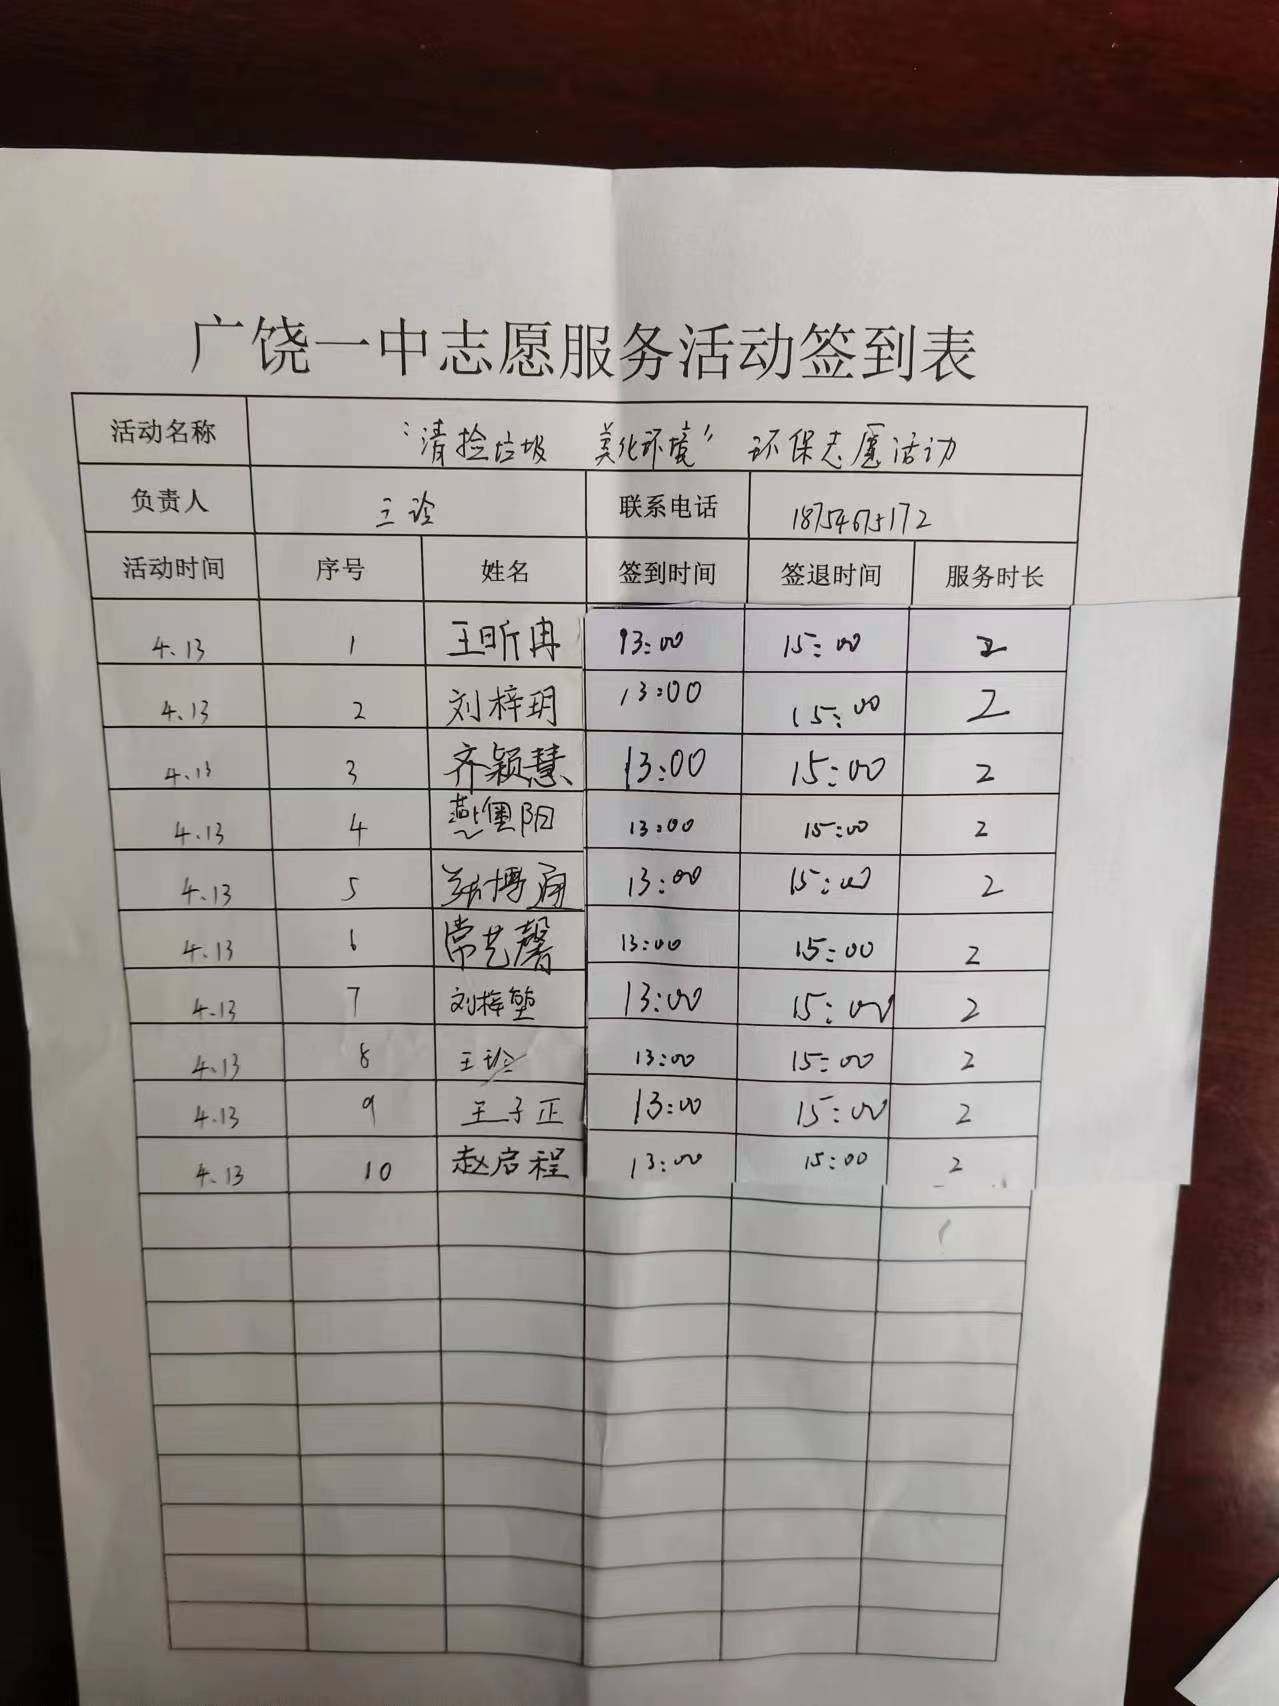 广饶一中志愿服务活动签到表
活动名称 "清捡垃圾 美化环境" 环保志愿活动
负责人 王诠 联系电话 18754675172
活动时间 序号 姓名 签到时间 签退时间 服务时长
4.13 1 王昕冉 13:00 15:00 2
4.13 2 刘梓玥 13:00 15:00 2
4.13 3 齐颖慧 13:00 15:00 2
4.13 4 阳 13:00 15:00 2
4.13 5 博 13:00 15:00 2
4.13 6 常艺馨 13:00 15:00 2
4.13 7 刘梓堃 13:00 15:00 2
4.13 8 王 13:00 15:00 2
4.13 9 王子正 13:00 15:00 2
4.13 10 赵启程 13:00 15:00 2